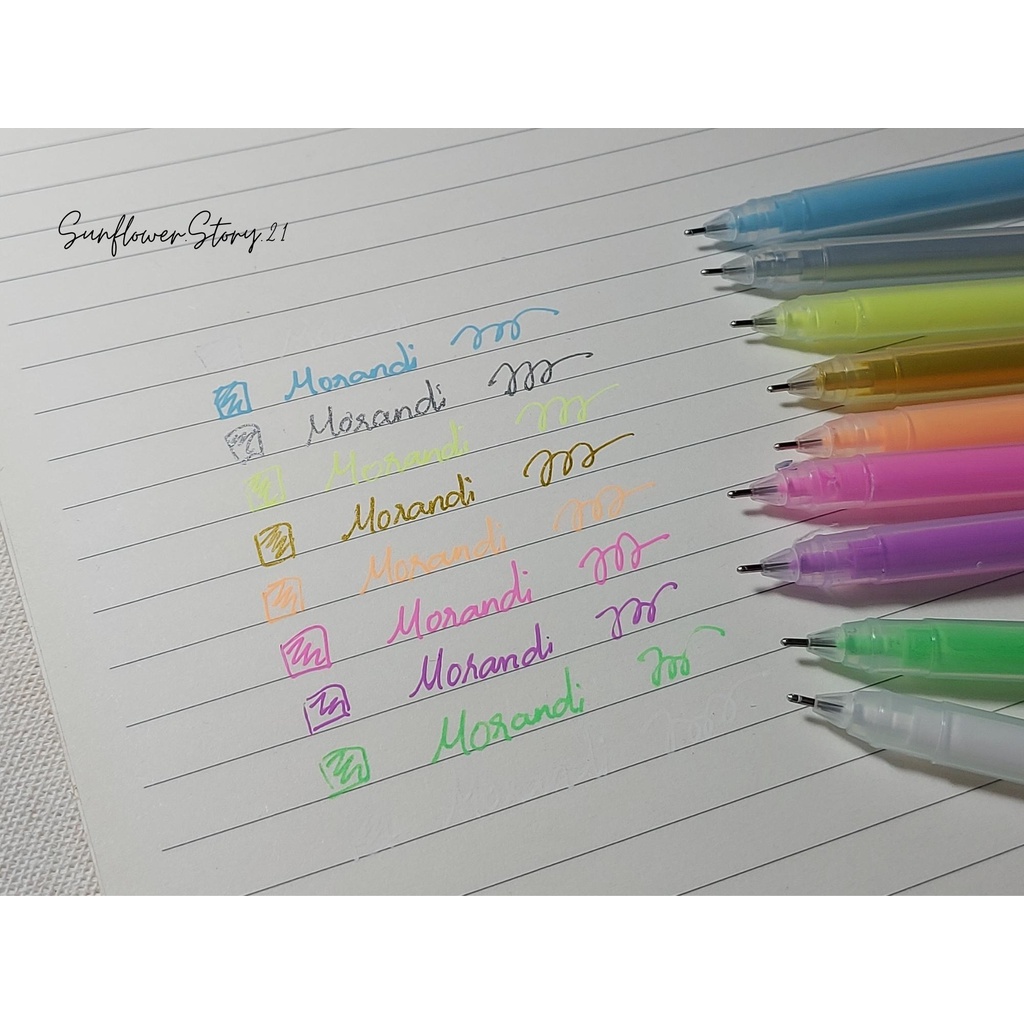 Sunflower.Story.21
Morandi
Morandi
Morandi
Morandi
Morandi
Morandi
Morandi
Morandi
Morandi